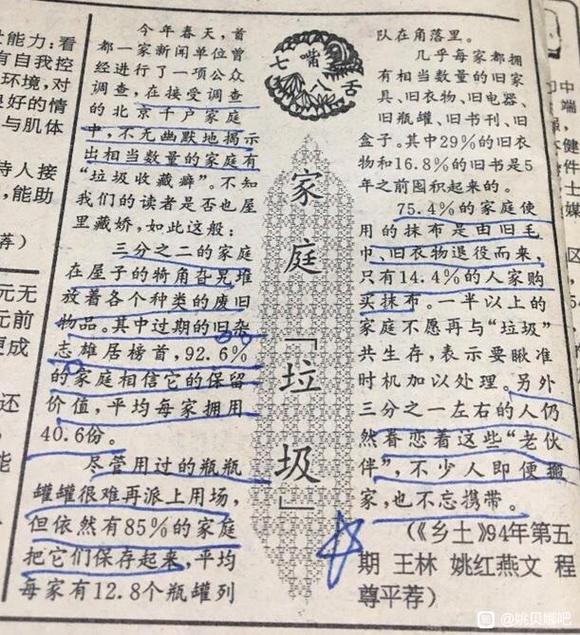 士能力：看
有自我控
环境，对
良好的情
与肌体
待人接
，能助
荐）
元无
元前
更成
还
能
今年春天，首
都一家新闻单位曾
经进行了一项公众
调查，在接受调查
的北京千户家庭
中，不无幽默地揭示
出相当数量的家庭有
“垃圾收藏癖”。不知
我们的读者是否也屋
里藏娇，如此这般：
三分之二的家庭
在屋子的犄角旮旯堆
放着各个种类的废旧
物品。其中过期的旧杂
志雄居榜首，92.6%
的家庭相信它的保留
价值，平均每家拥用
40.6份。
尽管用过的瓶瓶
罐罐很难再派上用场，
但依然有85%的家庭
把它们保存起来，平均
每家有12.8个瓶罐列
七嘴八舌
家庭「垃圾」
队在角落里。
几乎每家都拥
有相当数量的旧家
具、旧衣物、旧电器、
旧瓶罐、旧书刊、旧
盒子。其中29%的旧衣
物和16.8%的旧书是5
年之前囤积起来的。
75.4%的家庭使
用的抹布是由旧毛
巾、旧衣物退役而来，
只有14.4%的人家购
买抹布。一半以上的
家庭不愿再与“垃圾”
共生存，表示要瞅准
时机加以处理。另外
三分之一左右的人仍
然眷恋着这些“老伙
伴”，不少人即便搬
家，也不忘携带。
（《乡土》94年第五
期 王林 姚红燕文 程
尊平荐）
中
端
健
件
士
媒
区
@姚贝娜吧